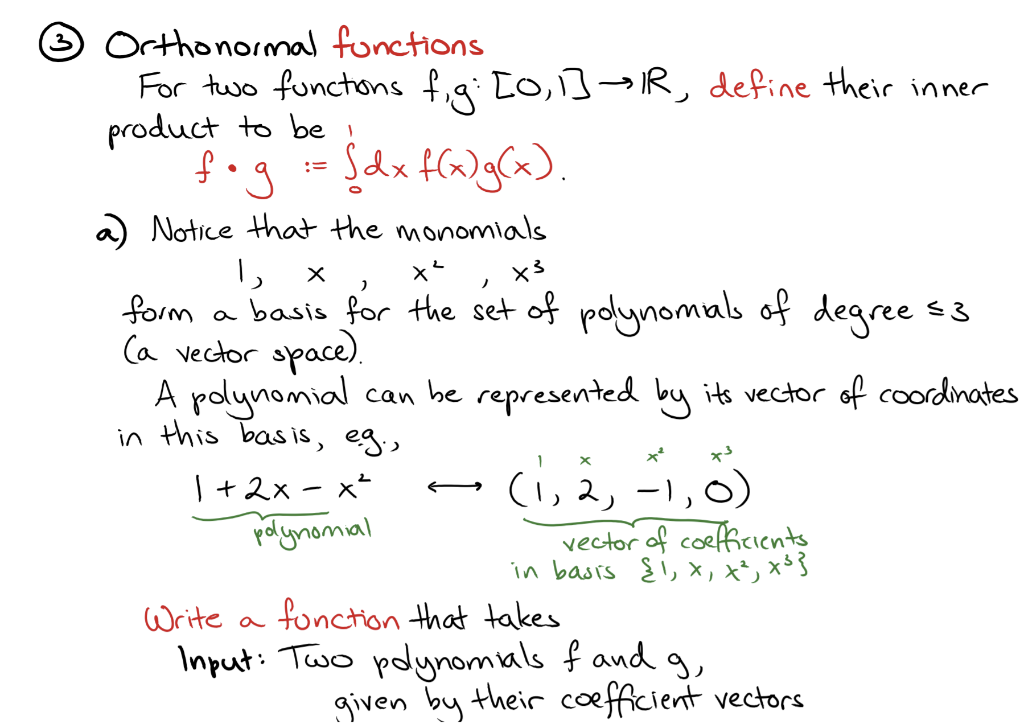 ③ Orthonormal functions
For two functions f,g: [0,1]→ℝ, define their inner
product to be
f • g := ∫₀¹dx f(x)g(x).
a) Notice that the monomials
1, x , x² , x³
form a basis for the set of polynomials of degree ≤3
(a vector space).
A polynomial can be represented by its vector of coordinates
in this basis, eg.,
1 x x² x³
1 + 2x − x² ⟷ (1, 2, −1, 0)
polynomial vector of coefficients
in basis {1, x, x², x³}
Write a function that takes
Input: Two polynomials f and g,
given by their coefficient vectors